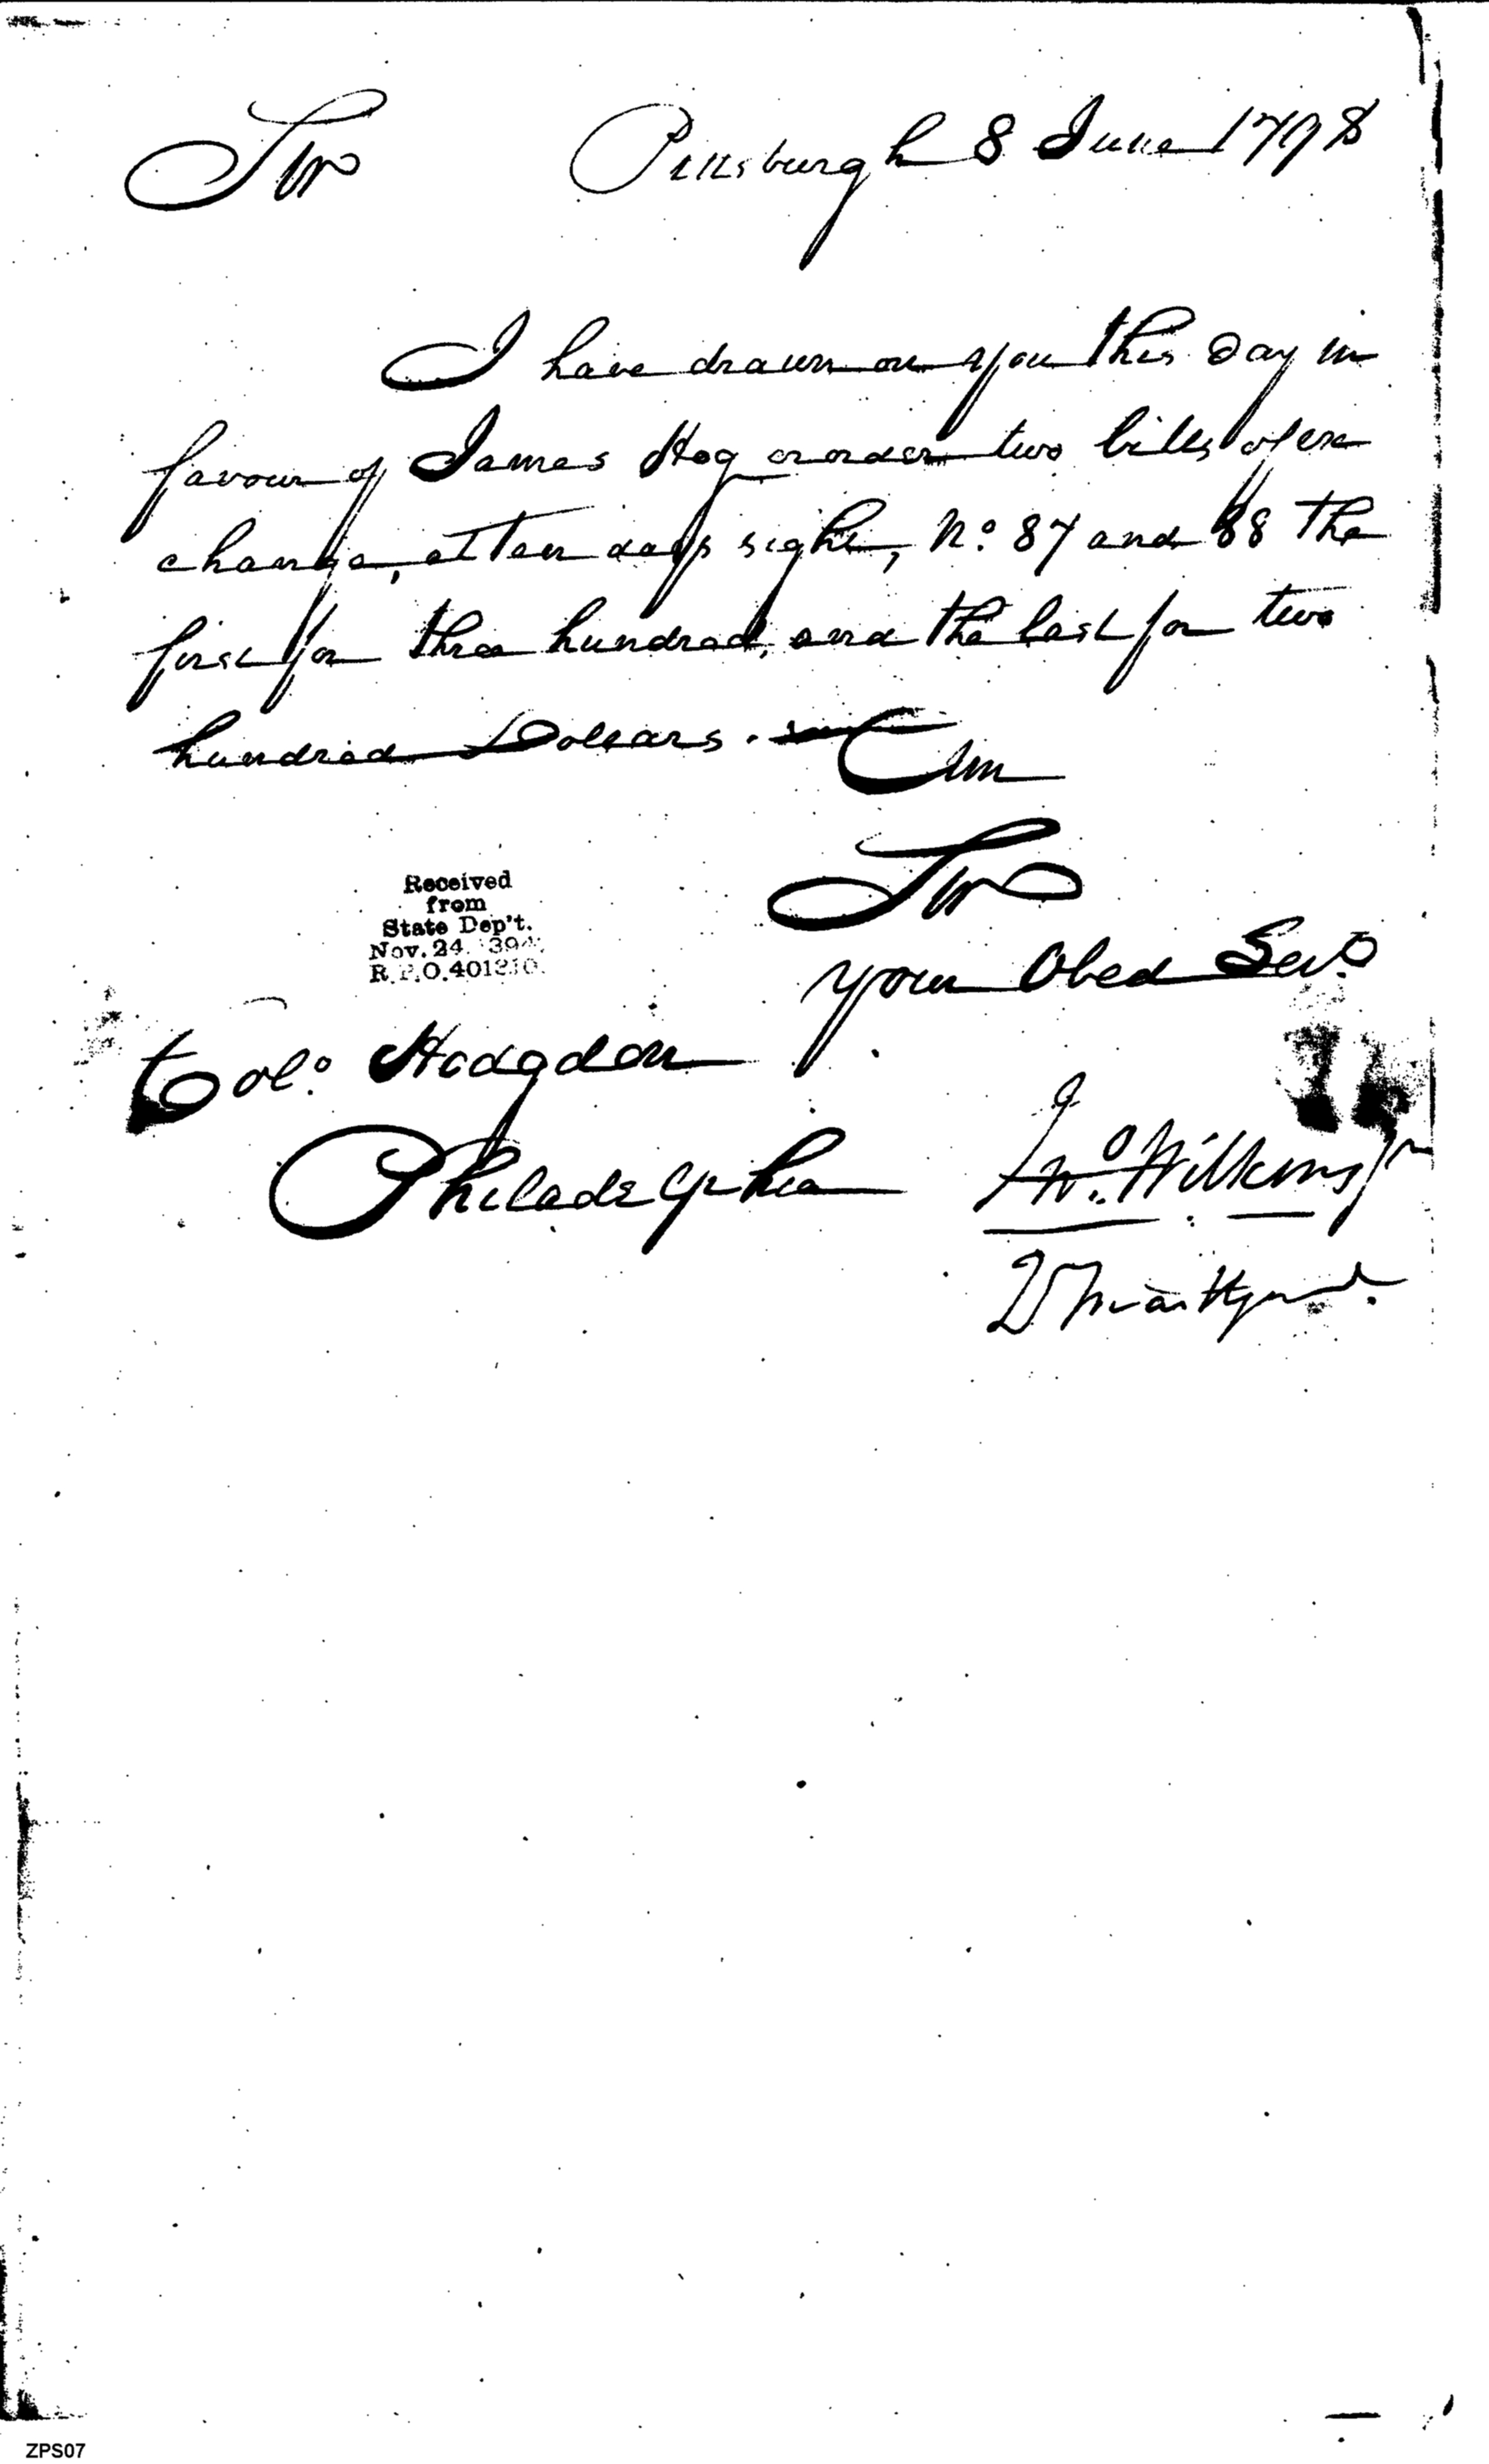 Sir Pittsburgh 8 June 1798
I have drawn on you this Day in
favour of James Hog or order two bills of ex
change, at ten days sight, No. 87 and 88 the
first for three hundred, and the last for two
hundred Dollars.
Sir
your Obed Servt
Received
from
State Dep't.
Nov. 24.
R.P.O. 401210.
Colo. Hodgdon
Philadelphia
Jno. Wilkins Jr
ZPS07